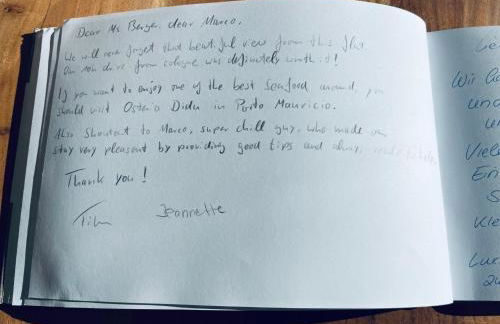 Dear Ms Berger, dear Marco,
We will never forget that beautiful view from this flat.
Our 10h drive from cologne was definitely worth it!
If you want to enjoy one of the best Seafood around, you
should visit Osteria Didu in Porto Mauricio.
Also Shoutout to Marco, super chill guy, who made our
stay very pleasent by providing good tips and always
Thank you!
Tim Jeannette
Wir
und
Viele
Ein